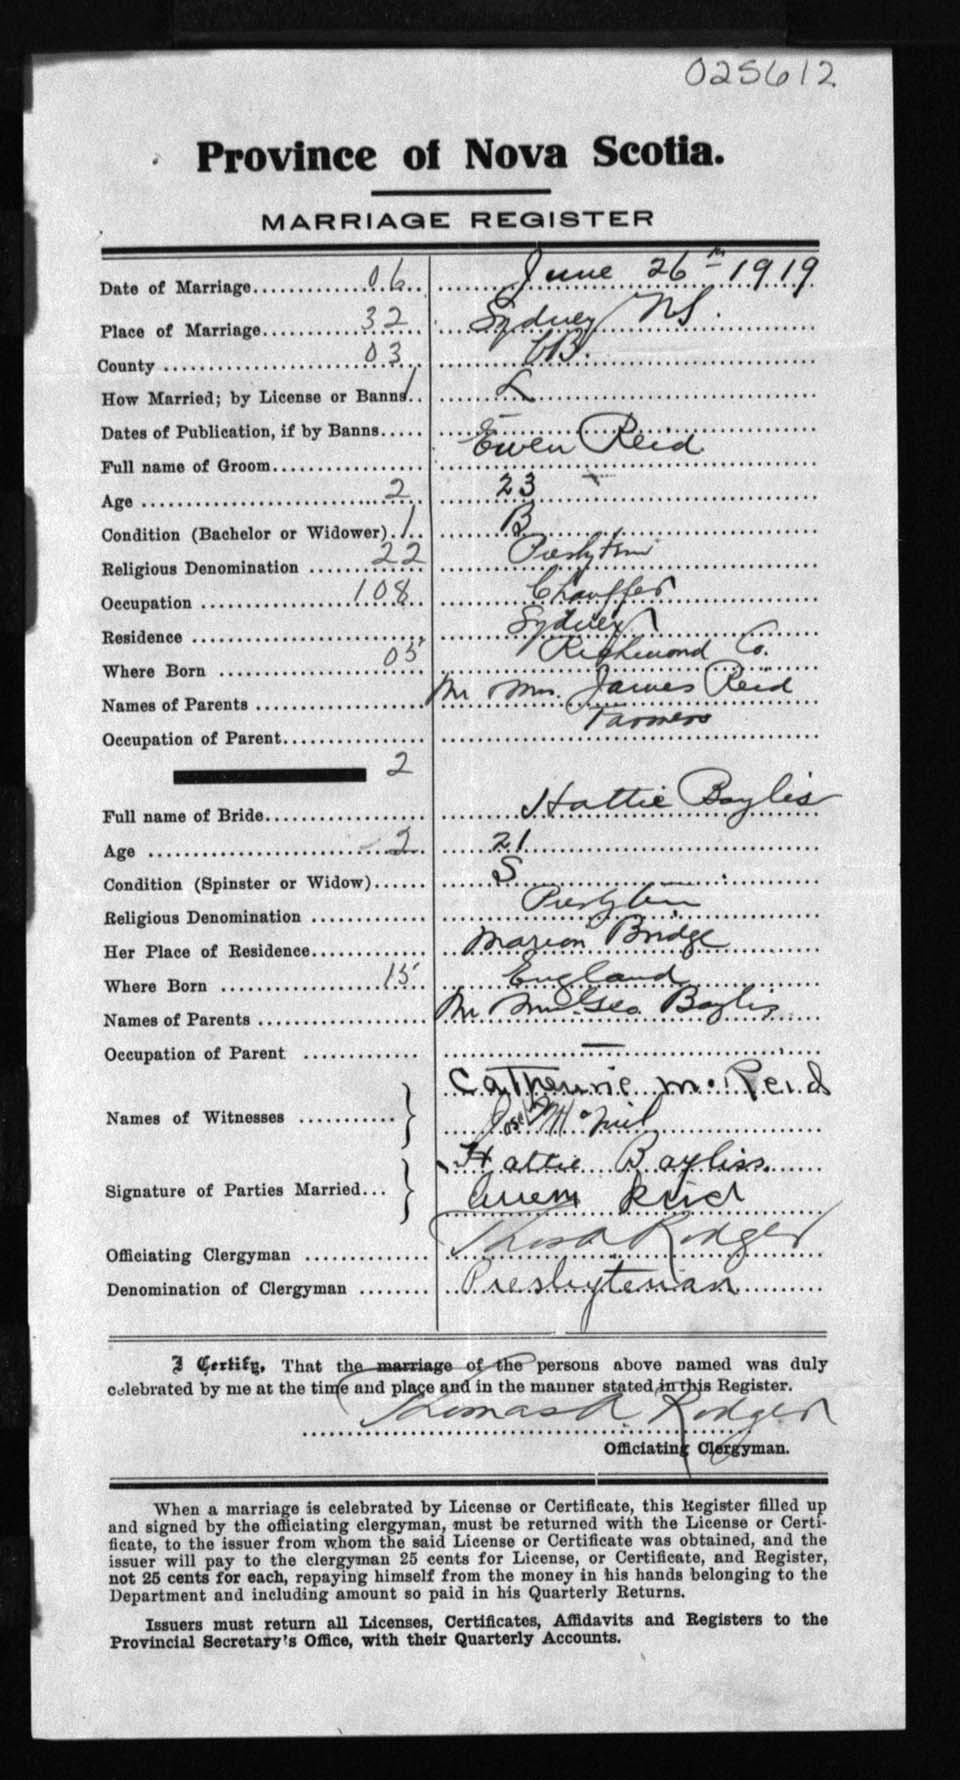 025612
Province of Nova Scotia.
MARRIAGE REGISTER
Date of Marriage 06 June 26th 1919
Place of Marriage 32 Sydney NS.
County 03 CB.
How Married; by License or Banns 1 L
Dates of Publication, if by Banns —
Full name of Groom Ewen Reid
Age 2 23
Condition (Bachelor or Widower) 1 B
Religious Denomination 22
Occupation 108 Chauffer
Residence Sydney
Where Born 05 Richmond Co.
Names of Parents Mr Mrs. James Reid
Occupation of Parent Farmers
2
Full name of Bride Hattie Baylis
Age 2 21
Condition (Spinster or Widow) S
Religious Denomination
Her Place of Residence Marion Bridge
Where Born 15 England
Names of Parents Mr Mrs Geo. Baylis
Occupation of Parent —
Names of Witnesses Catherine Mc Reid
Joseph McNeil
Signature of Parties Married Hattie Bayliss.
Ewen Reid
Officiating Clergyman Thos A Rodger
Denomination of Clergyman Presbyterian
I Certify, That the marriage of the persons above named was duly
celebrated by me at the time and place and in the manner stated in this Register.
Thomas A. Rodger
Officiating Clergyman.
When a marriage is celebrated by License or Certificate, this Register filled up
and signed by the officiating clergyman, must be returned with the License or Certi-
ficate, to the issuer from whom the said License or Certificate was obtained, and the
issuer will pay to the clergyman 25 cents for License, or Certificate, and Register,
not 25 cents for each, repaying himself from the money in his hands belonging to the
Department and including amount so paid in his Quarterly Returns.
Issuers must return all Licenses, Certificates, Affidavits and Registers to the
Provincial Secretary's Office, with their Quarterly Accounts.